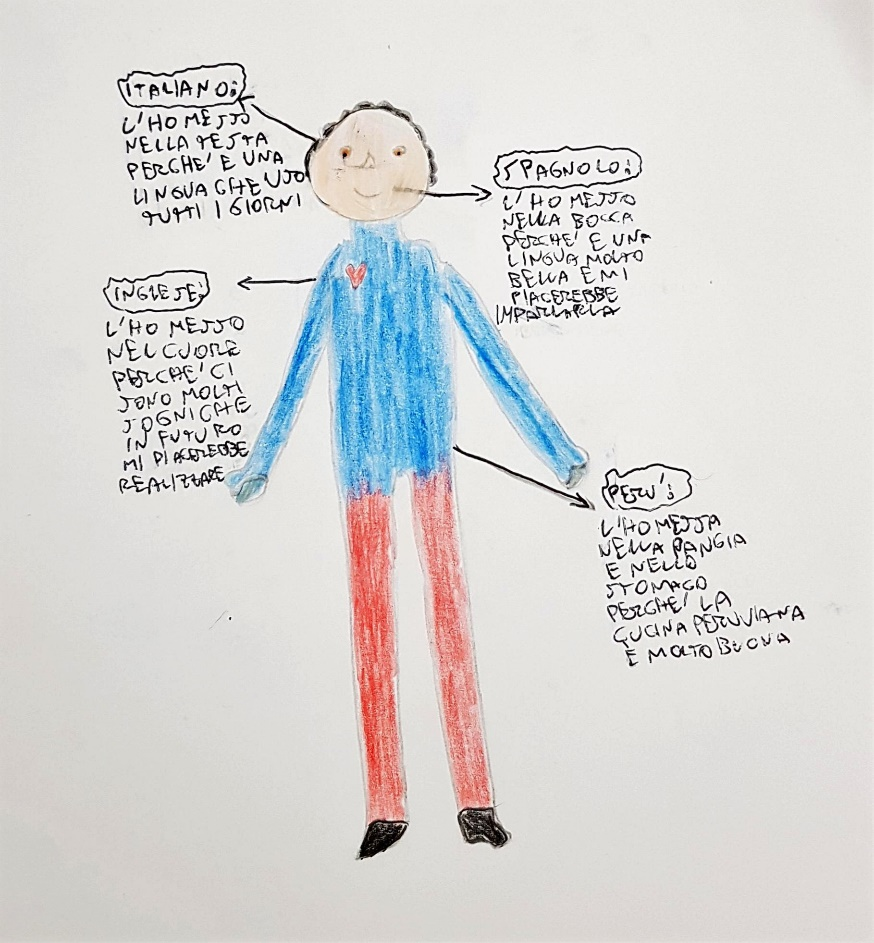 ITALIANO:
L'HO MESSO
NELLA TESTA
PERCHE' E UNA
LINGUA CHE USO
TUTTI I GIORNI
SPAGNOLO:
L'HO MESSO
NELLA BOCCA
PERCHE' E UNA
LINGUA MOLTO
BELLA E MI
PIACEREBBE
IMPARARLA
INGLESE:
L'HO MESSO
NEL CUORE
PERCHE' CI
SONO MOLTI
SOGNI CHE
IN FUTURO
MI PIACEREBBE
REALIZZARE
PERU':
L'HO MESSA
NELLA PANGIA
E NELLO
STOMACO
PERCHE' LA
CUCINA PERUVIANA
E MOLTO BUONA